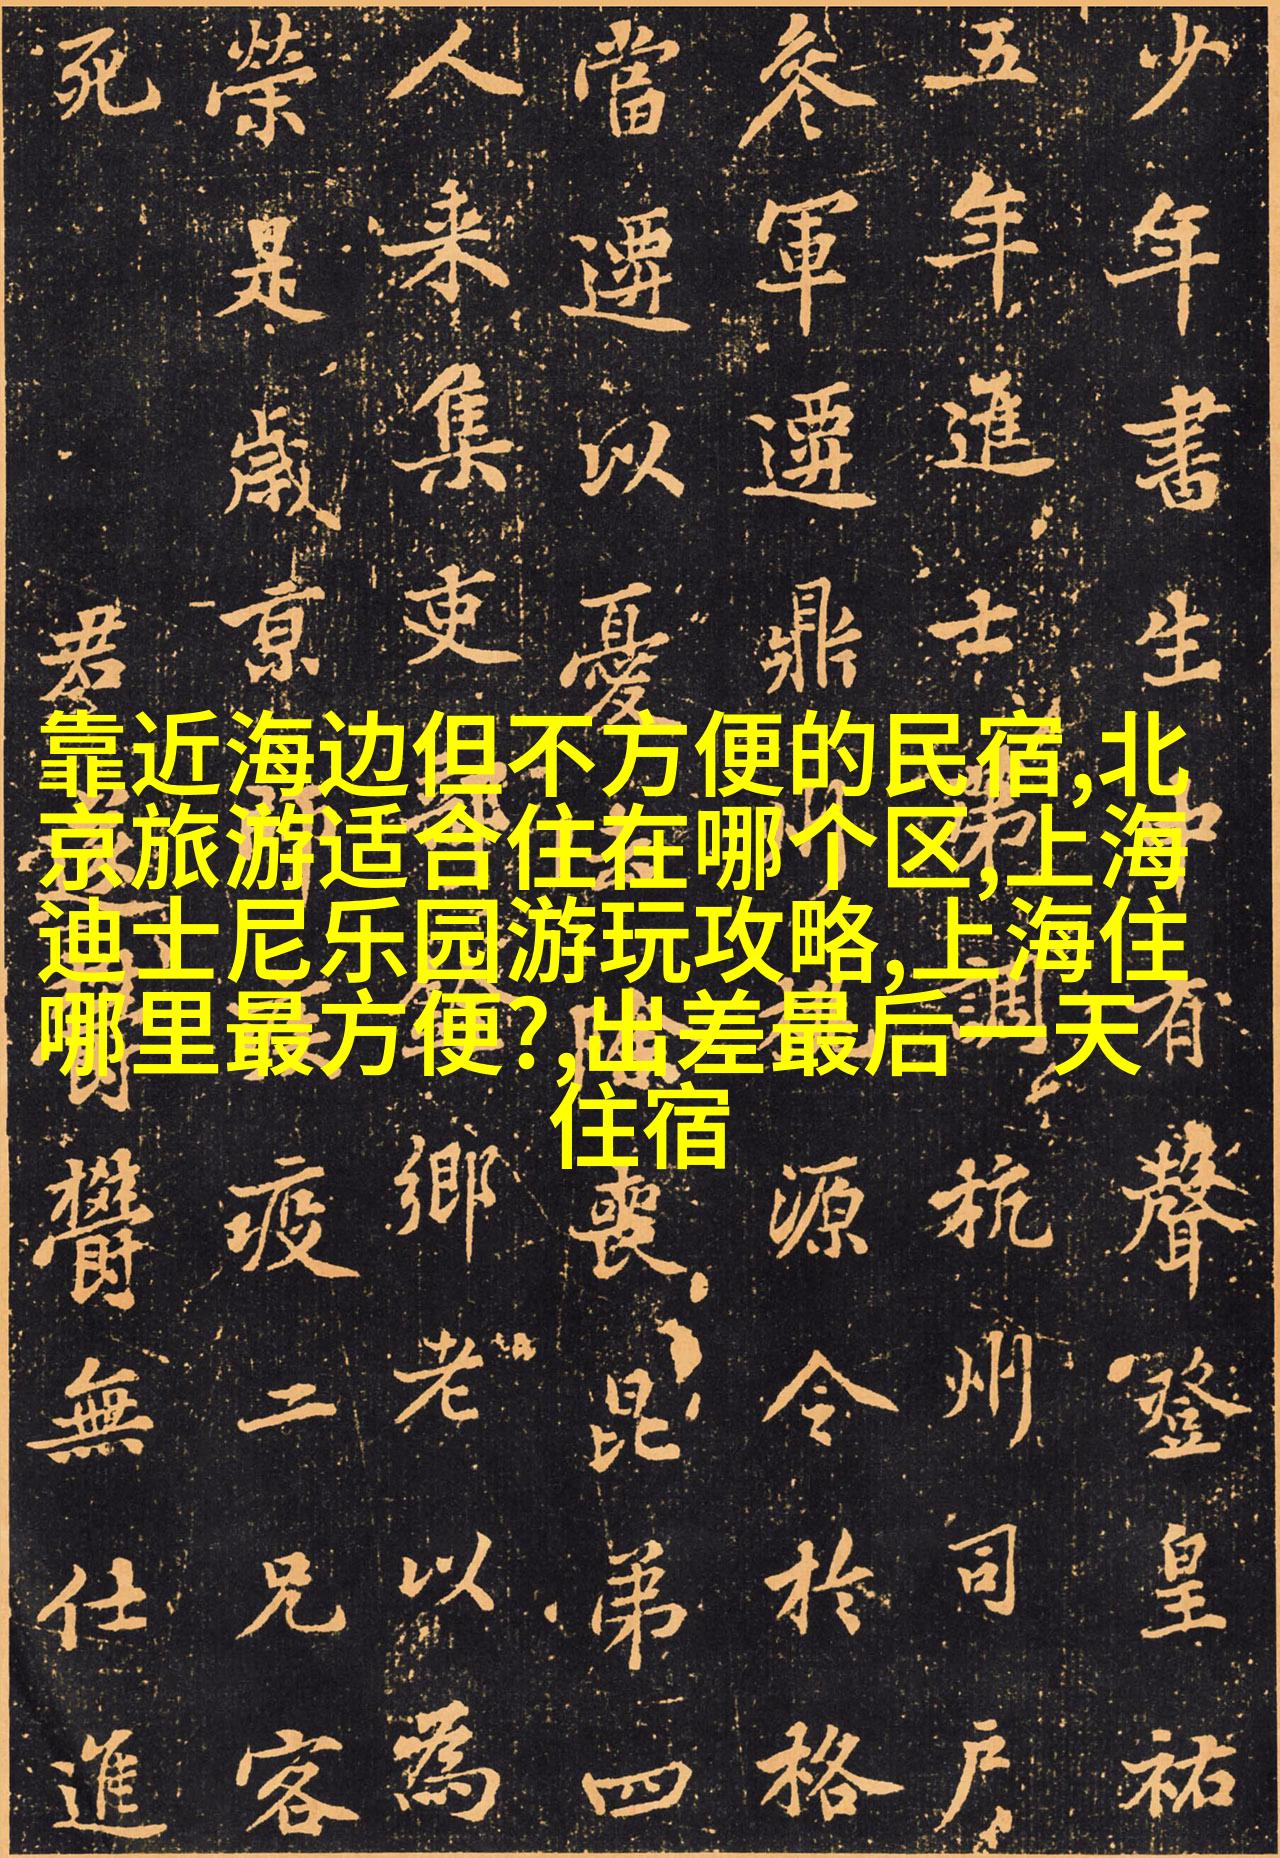 少年書生中有聲登皇祐
五年進士第調杭州司戶
叅軍遷鼎州源令於格
當遷以憂去喪昆弟四
人来集吏鄉老以為
榮是歲京師疫二兄客
死君無仕進
靠近海边但不方便的民宿,北
京旅游适合住在哪个区,上海
迪士尼乐园游玩攻略,上海住
哪里最方便?,出差最后一天
住宿